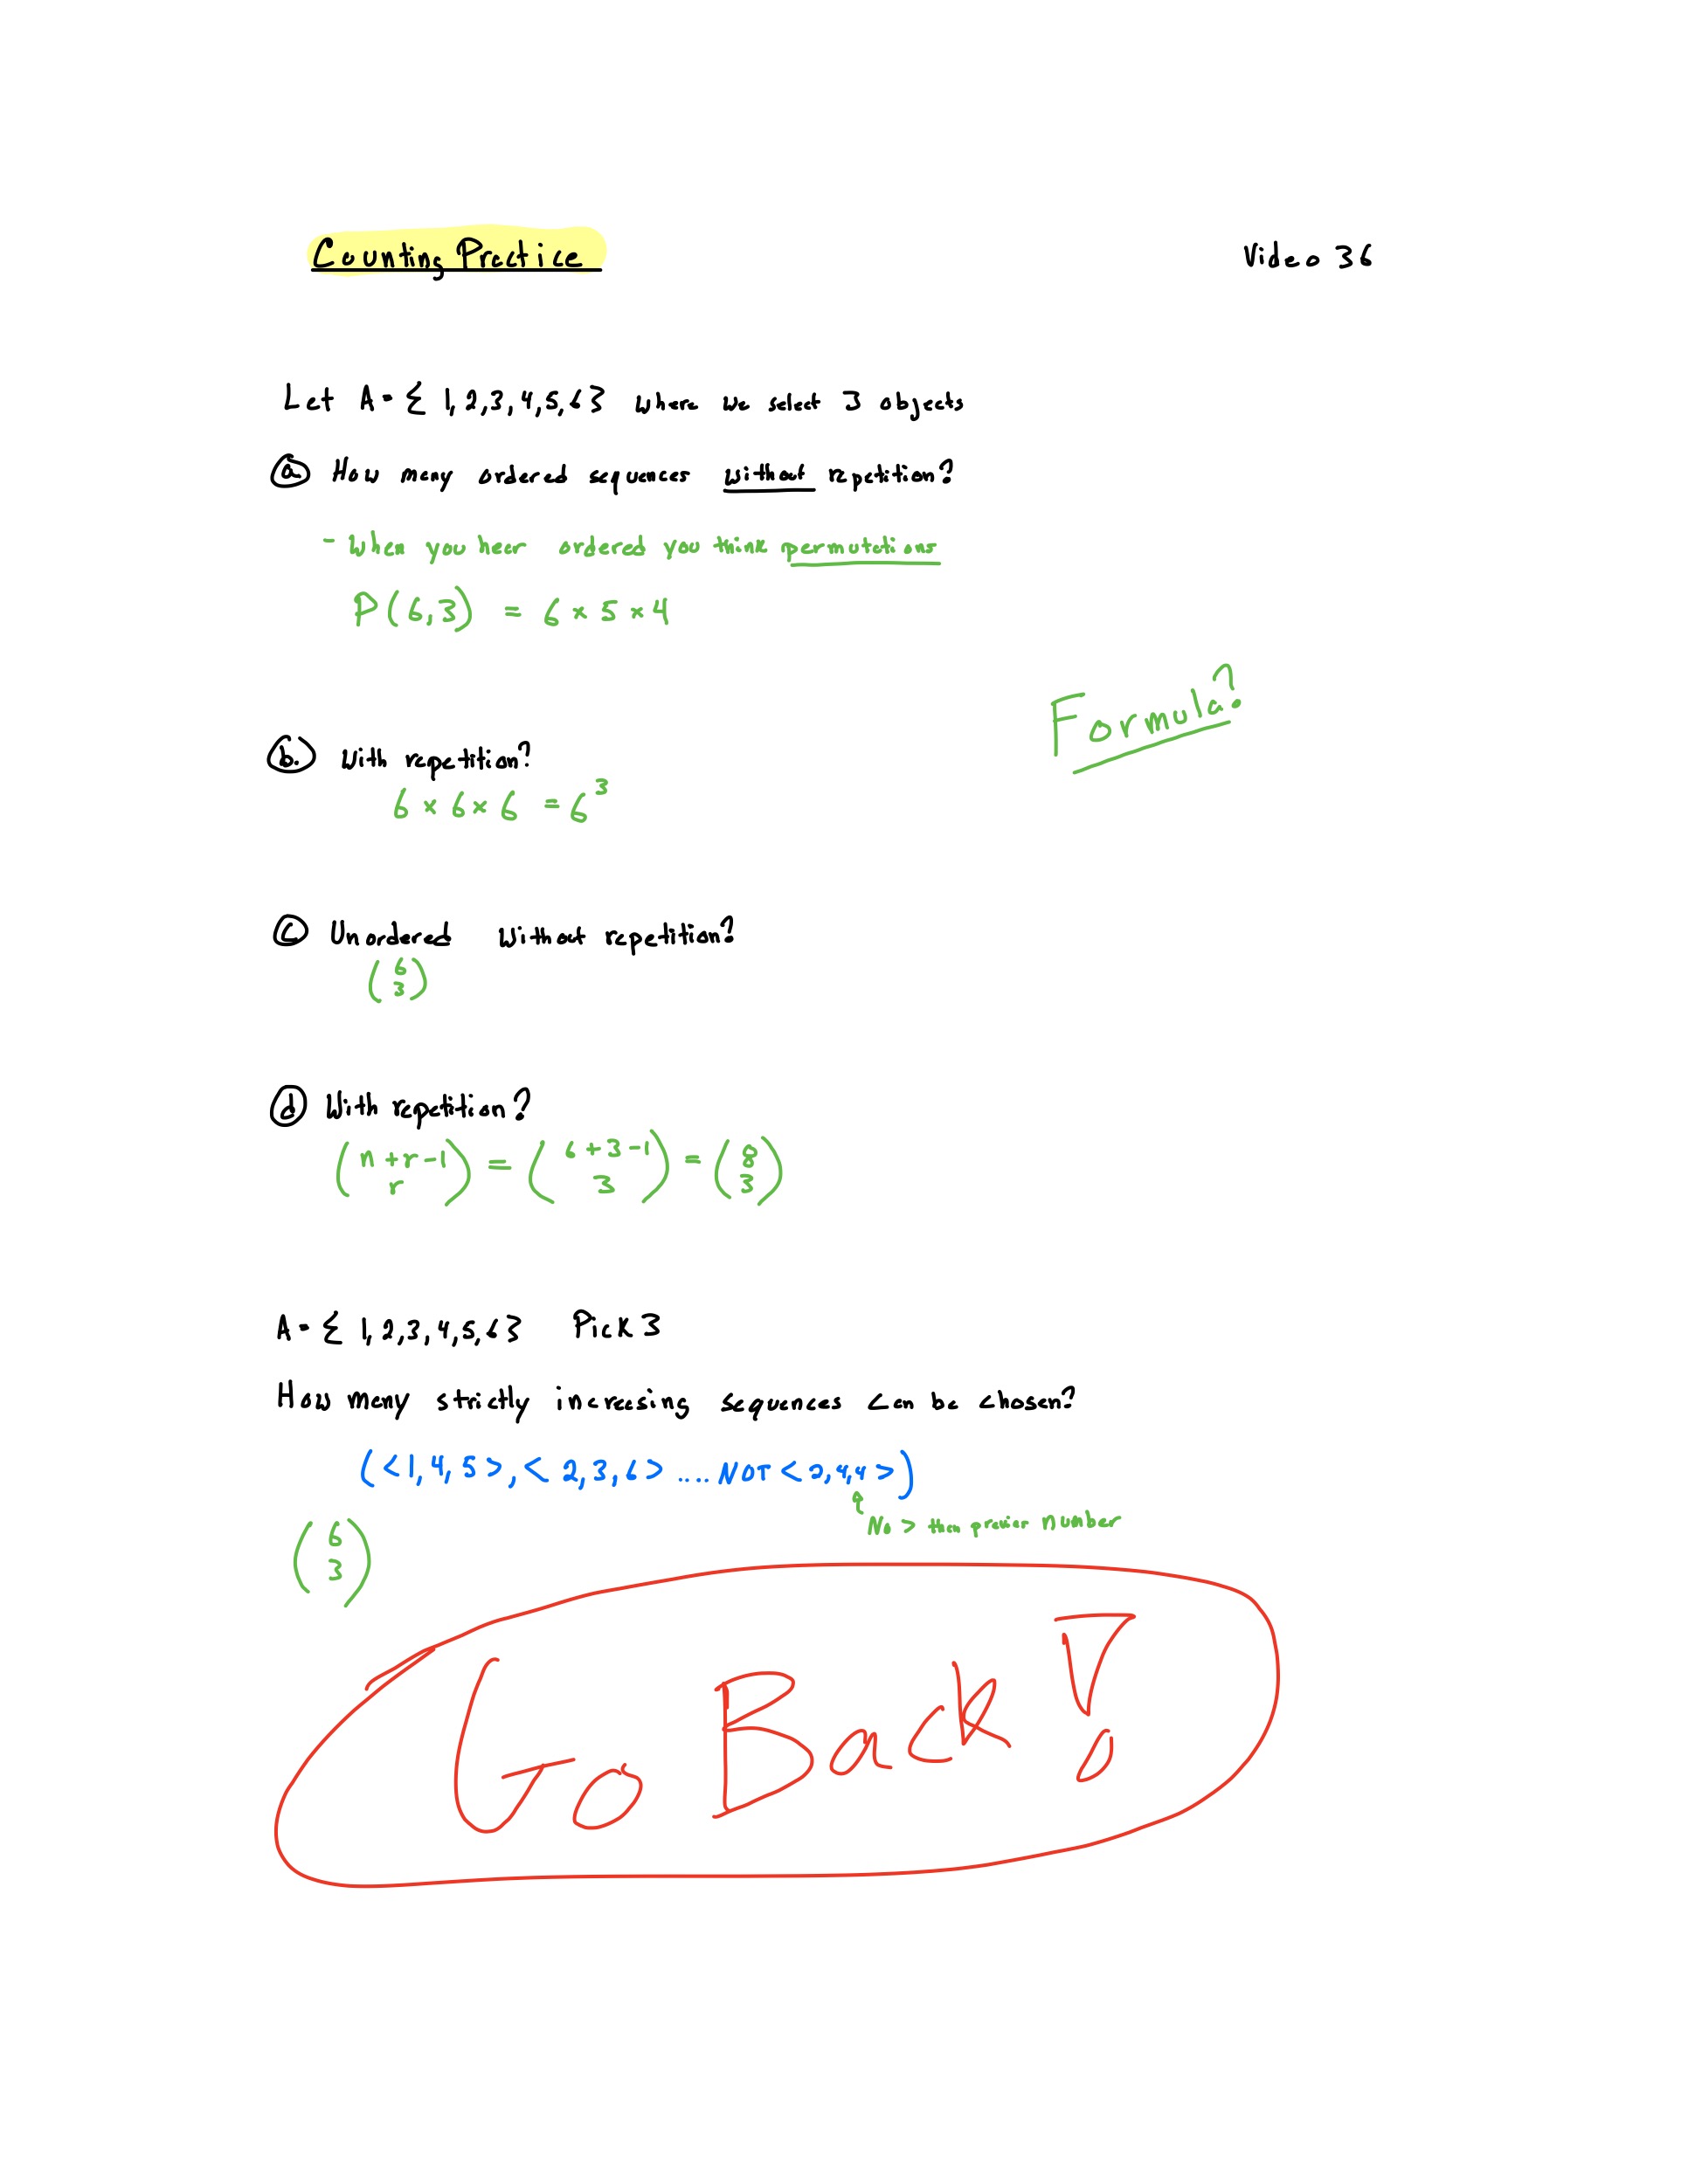 Counting Practice
Video 36
Let A = { 1, 2, 3, 4, 5, 6 } where we select 3 objects
(a) How many ordered sequences without repetition?
- When you hear ordered you think permutations
P(6,3) = 6 × 5 × 4
Formula?
(b.) With repetition?
6 × 6 × 6 = 6³
(c) Unordered without repetition?
(6
3)
(d) With repetition?
(n + r - 1) = (6 + 3 - 1) = (8)
(r) (3) (3)
A = { 1, 2, 3, 4, 5, 6 } Pick 3
How many strictly increasing sequences can be chosen?
(<1, 4, 5>, < 2, 3, 6> .... NOT < 2, 4, 4 >)
No > then number
(6
3)
Go Back!